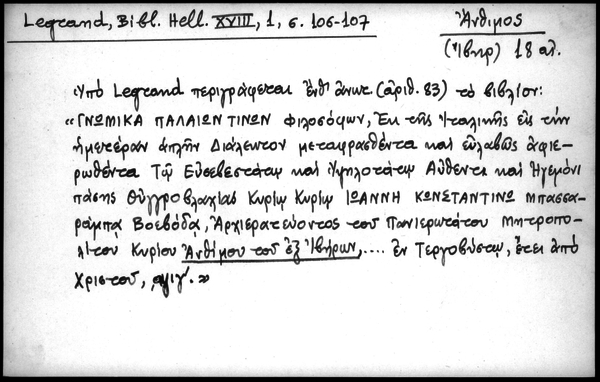 Legrand, Bibl. Hell. XVIII, 1, σ. 106-107
Ἄνθιμος
(Ἴβηρ) 18 αἰ.
Ὑπὸ Legrand περιγράφεται ἔνθ' ἀνωτ. (ἀριθ. 83) τὸ βιβλίον:
«ΓΝΩΜΙΚΑ ΠΑΛΑΙΩΝ ΤΙΝΩΝ Φιλοσόφων, Ἐκ τῆς Ἰταλικῆς εἰς τὴν
ἡμετέραν ἁπλῆν Διάλεκτον μεταφρασθέντα καὶ εὐλαβῶς ἀφιε-
ρωθέντα Τῷ Εὐσεβεστάτῳ καὶ Ὑψηλοτάτῳ Αὐθέντῃ καὶ Ἡγεμόνι
πάσης Οὐγγροβλαχίας Κυρίῳ Κυρίῳ ΙΩΑΝΝΗ ΚΩΝΣΤΑΝΤΙΝΩ Μπασσα-
ράμπᾳ Βοεβόδᾳ, Ἀρχιερατεύοντος τοῦ Πανιερωτάτου Μητροπο-
λίτου Κυρίου Ἀνθίμου τοῦ ἐξ Ἰβήρων, .... ἐν Τεργοβύστῳ, ἔτει ἀπὸ
Χριστοῦ, ͵αψιγ'.»